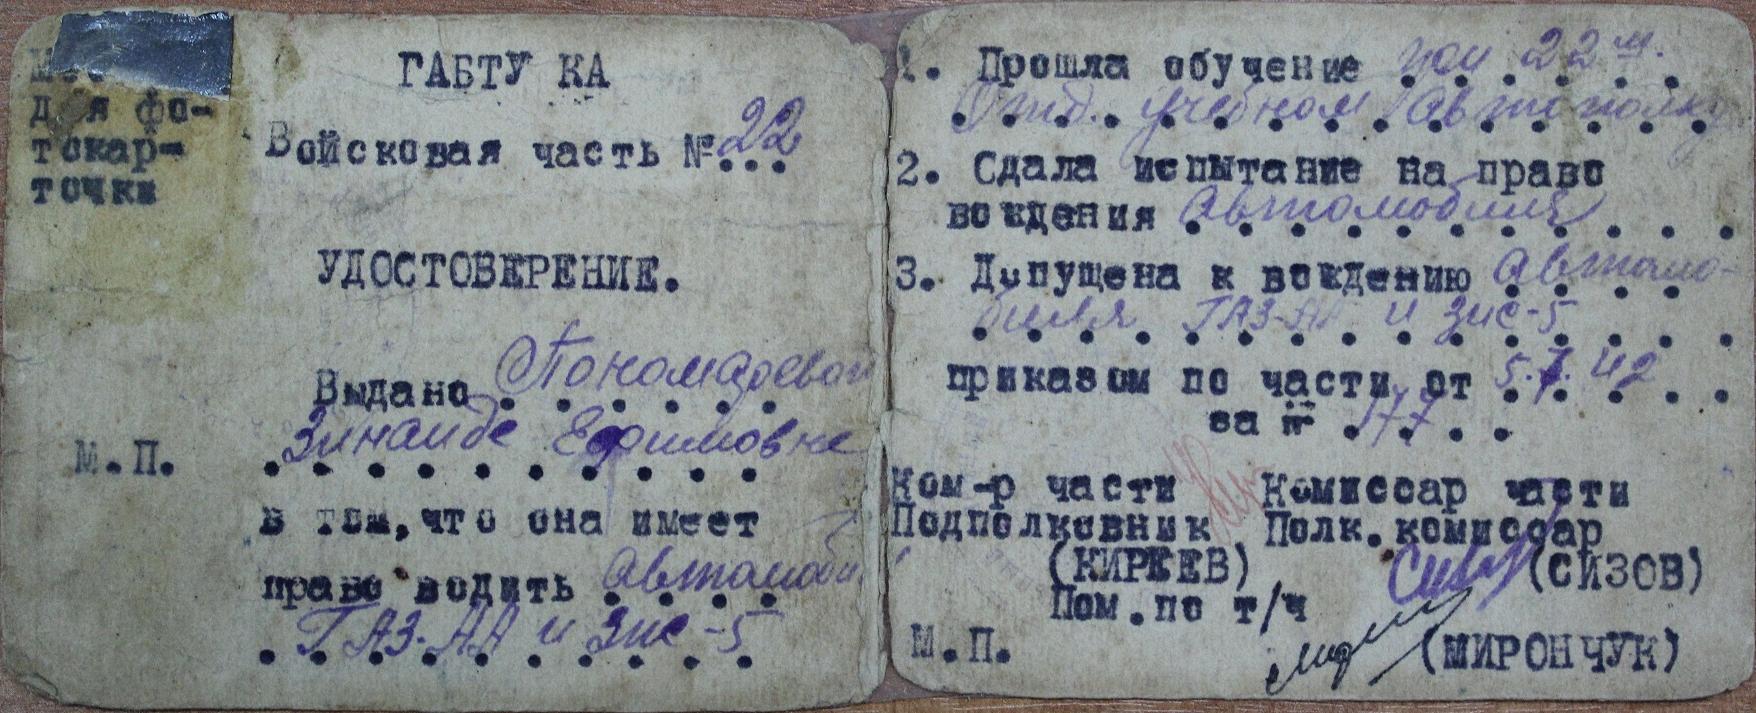 Место
для фо-
токар-
точки
ГАБТУ КА
Войсковая часть № 22
УДОСТОВЕРЕНИЕ.
Выдано Пономаревой
Зинаиде Ефимовне
М.П.
в том, что она имеет
право водить автомоби
ГАЗ-АА и Зис-5
1. Прошла обучение при 22 м.
Отд. учебном автополку
2. Сдала испытание на право
вождения автомобиля
3. Допущена к вождению автомо-
биля ГАЗ-АА и Зис-5
приказом по части от 5.7.42
за № 177
Ком-р части Комиссар части
Подполковник Полк.комиссар
(КИРЕЕВ) (СИЗОВ)
Пом.по т/ч
М.П. (МИРОНЧУК)